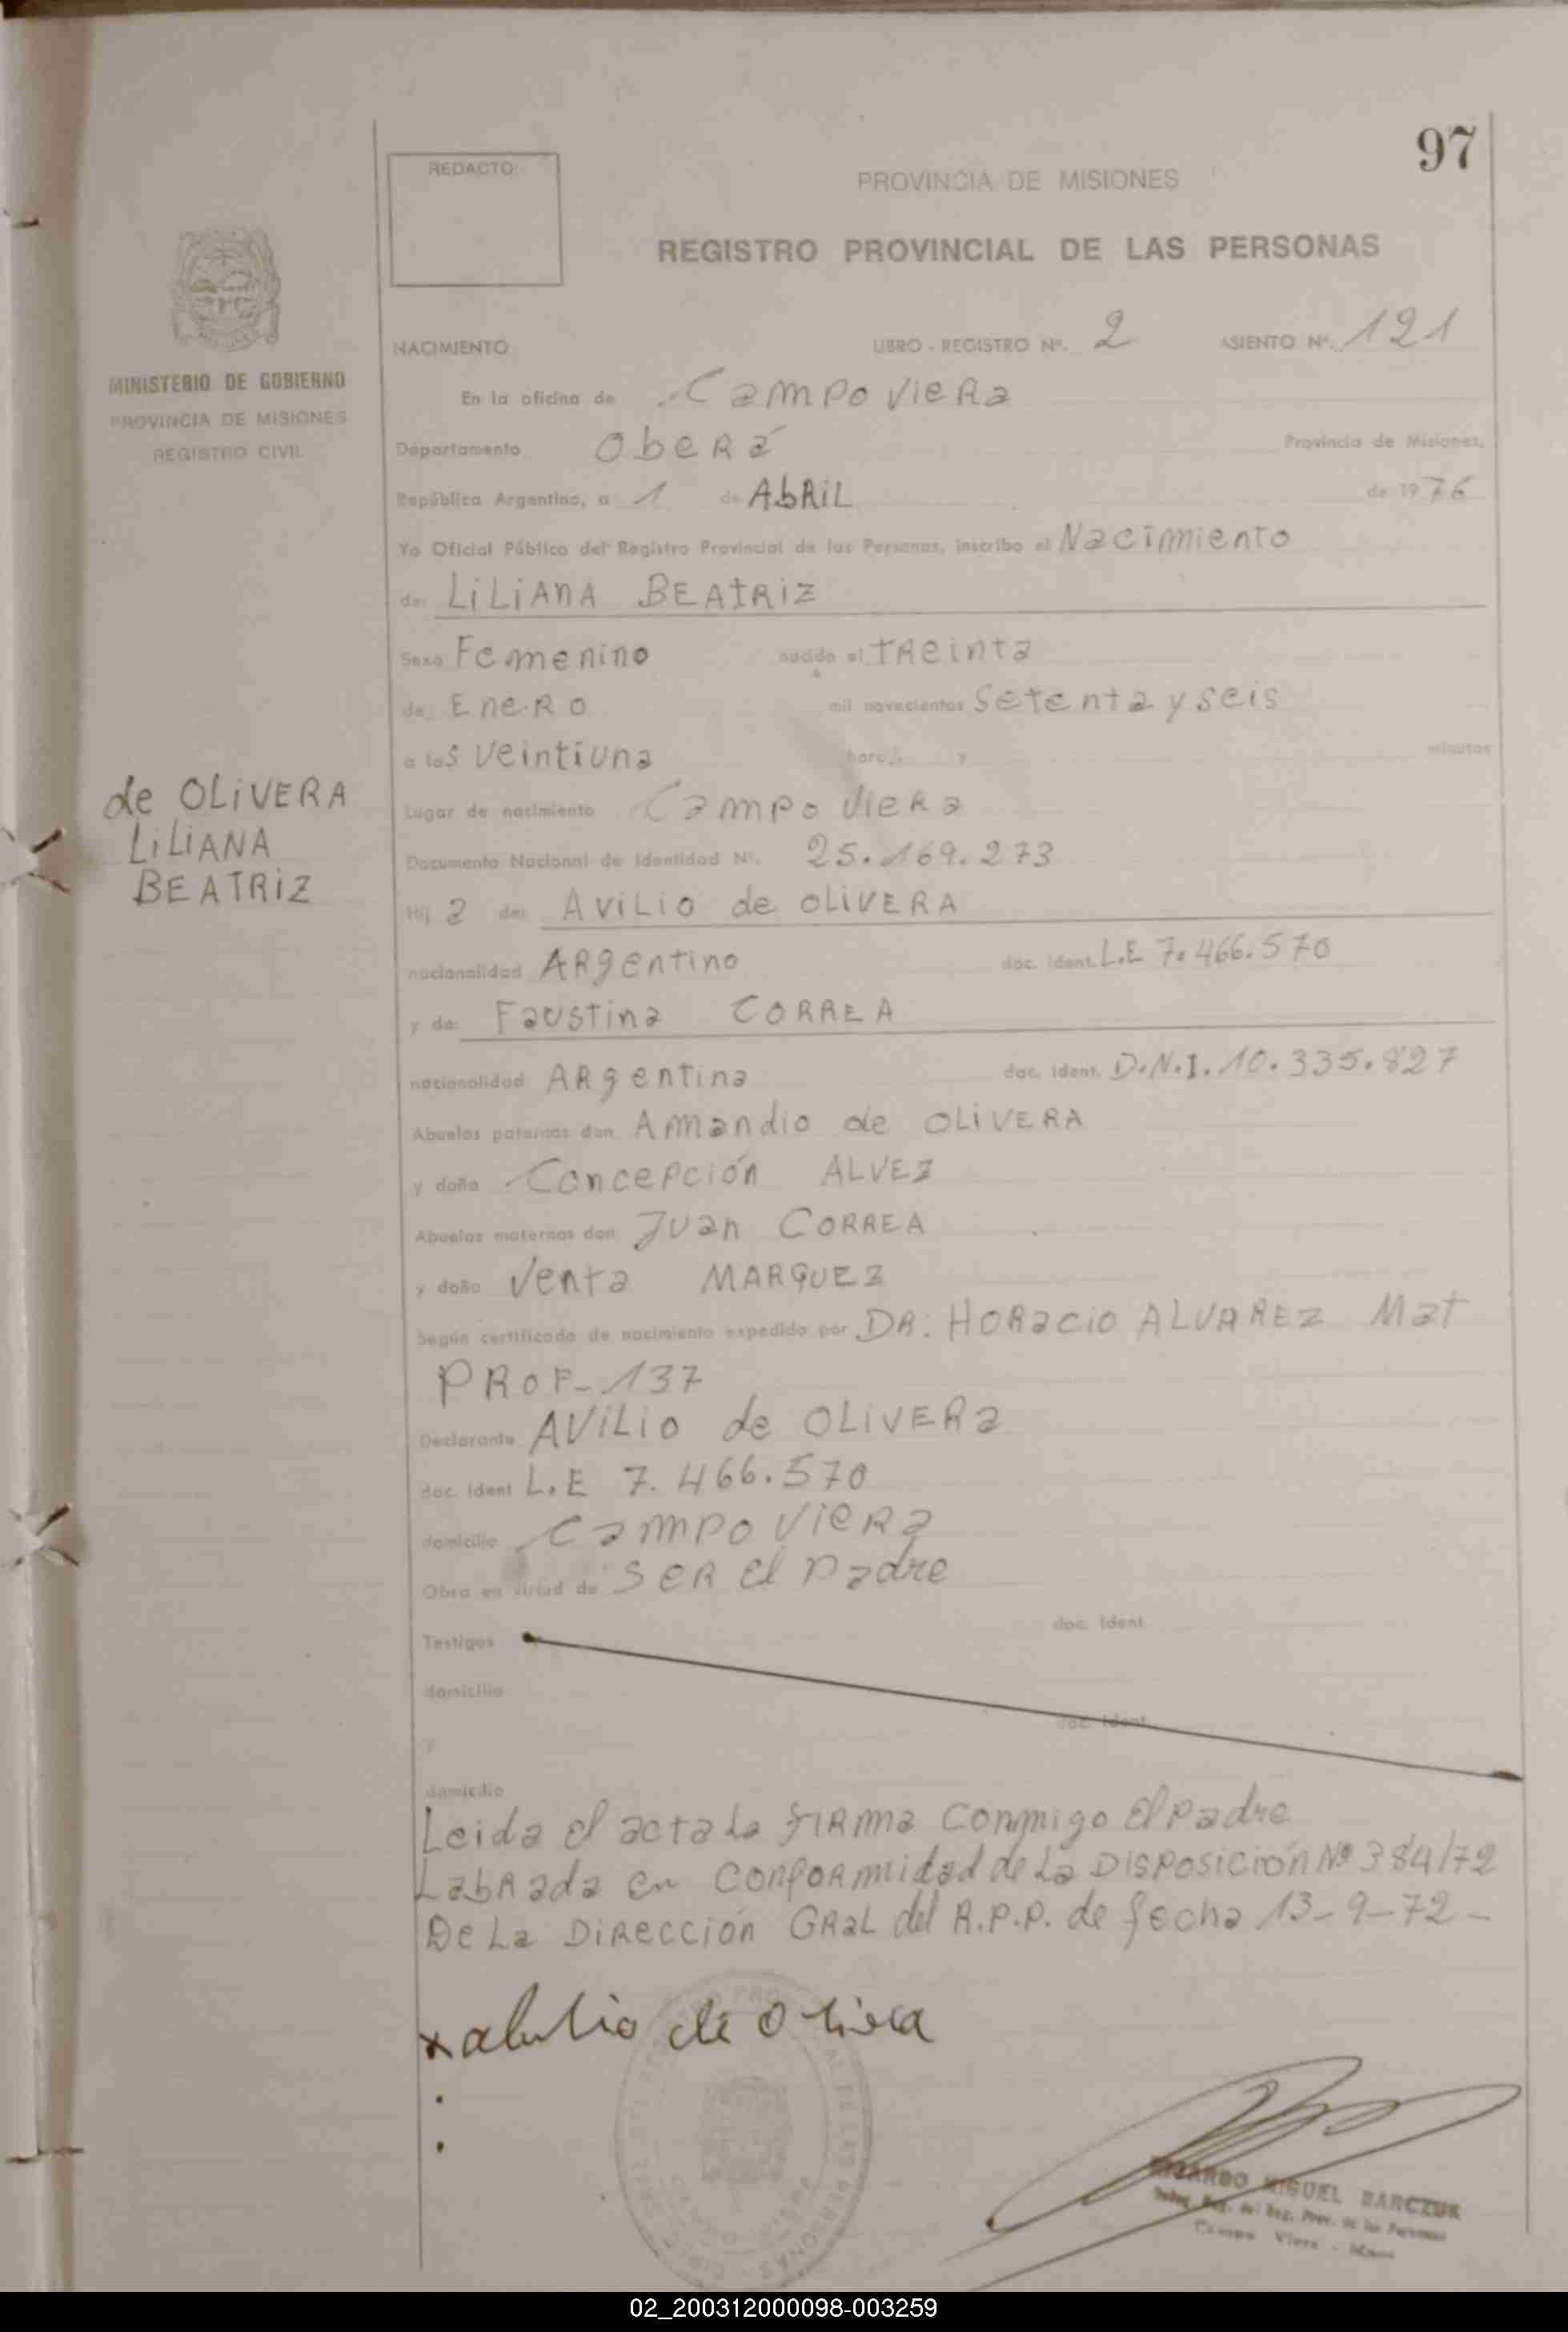 97
REDACTO:
PROVINCIA DE MISIONES
REGISTRO PROVINCIAL DE LAS PERSONAS
MINISTERIO DE GOBIERNO
PROVINCIA DE MISIONES
REGISTRO CIVIL
NACIMIENTO LIBRO - REGISTRO Nº. 2 ASIENTO Nº. 121
En la oficina de Campo Viera
Departamento Oberá Provincia de Misiones,
República Argentina, a 1 de Abril de 1976
Yo Oficial Público del Registro Provincial de las Personas, inscribo el Nacimiento
de: LILIANA BEATRIZ
Sexo Femenino nacida el treinta
de Enero mil novecientos setenta y seis
a las veintiuna horas y minutos
de OLIVERA
LILIANA
BEATRIZ
Lugar de nacimiento Campo Viera
Documento Nacional de Identidad Nº. 25.169.273
Hija de: AVILIO de OLIVERA
nacionalidad Argentino doc. ident. L.E 7.466.570
y de: Faustina CORREA
nacionalidad Argentina doc. ident. D.N.I. 10.335.827
Abuelos paternos don Amandio de OLIVERA
y doña Concepción ALVEZ
Abuelos maternos don Juan CORREA
y doña Venta MARQUEZ
Según certificado de nacimiento expedido por DR. HORACIO ALVAREZ Mat
PROF- 137
Declarante AVILIO de OLIVERA
doc. ident L.E 7.466.570
domicilio Campo Viera
Obra en virtud de SER el Padre
doc. ident.
Testigos
domicilio
doc. ident.
y
domicilio
Leida el acta la firma conmigo el Padre
Labrada en conformidad de la Disposición Nº 384/72
De La Dirección Gral del R.P.P. de fecha 13-9-72-
x de
MIGUEL BARCZUK
Campo Viera - Mnes
02_200312000098-003259